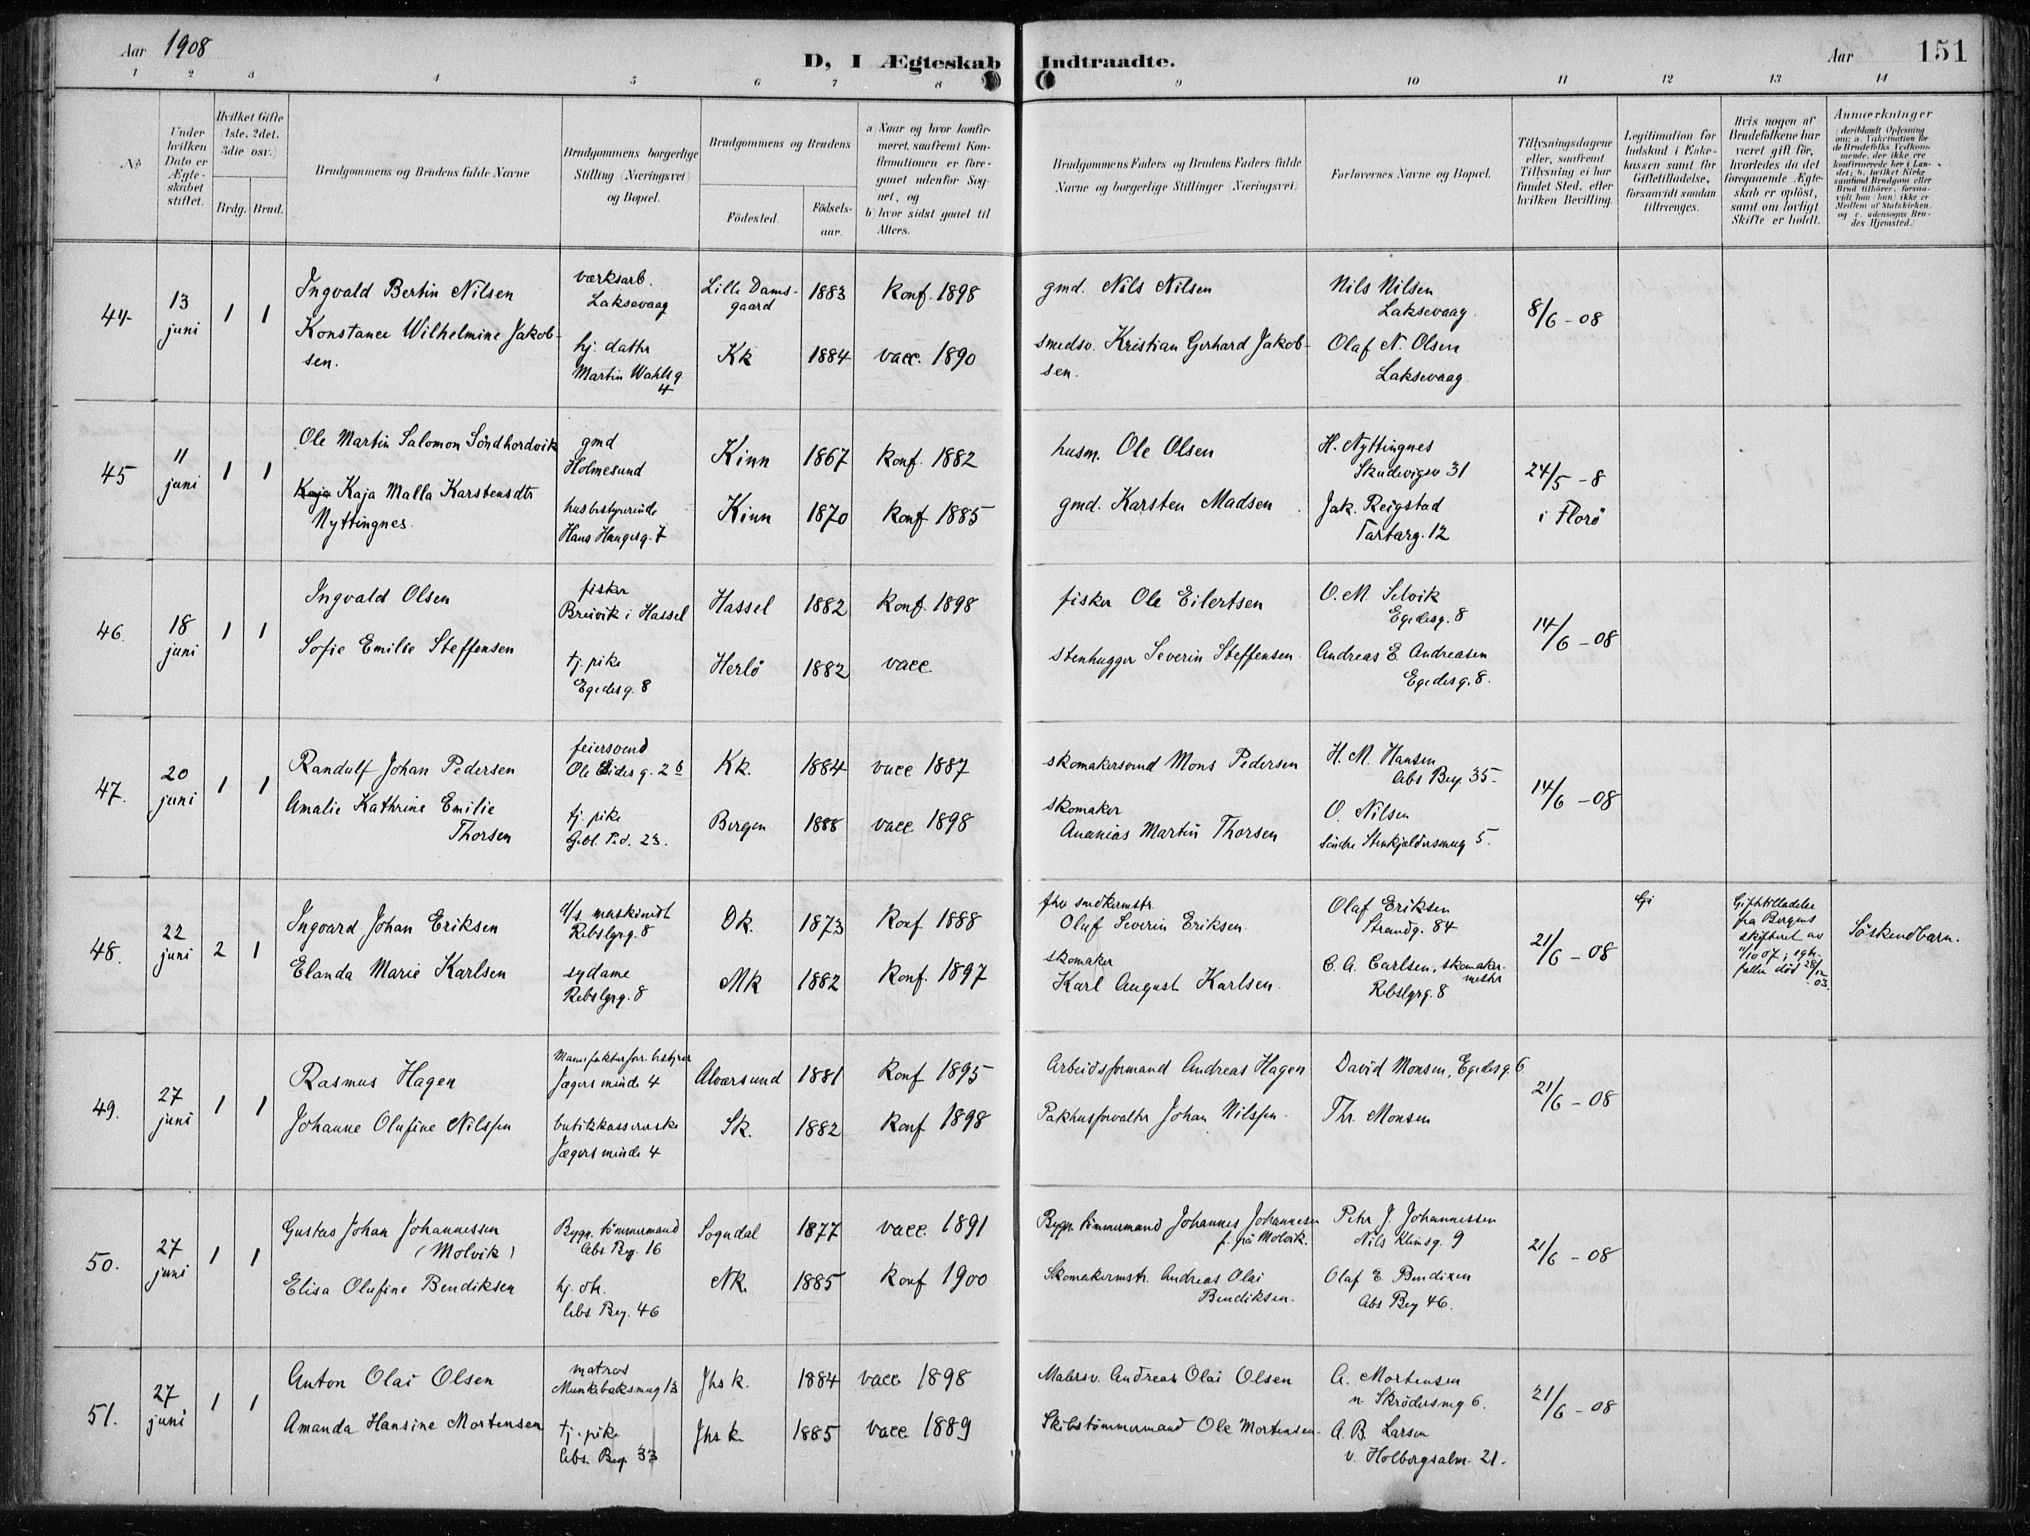 Aar 1908
D, I Ægteskab Indtraadte.
Aar
151
1 2 3 4 5 6 7 8 9 10 11 12 13 14
No
Under hvilken Dato er Ægteskabet stiftet.
Hvilket Gifte (1ste, 2det, 3die osv.)
Brdg. Brud.
Brudgommens og Brudens fulde Navne
Brudgommens borgerlige Stilling (Næringsvei) og Bopæl.
Brudgommens og Brudens
Fødested. Fødselsaar.
a) Naar og hvor konfirmeret, saafremt Konfirmationen er foregaaet udenfor Sognet, og
b) hvor sidst gaaet til Alters.
Brudgommens Faders og Brudens Faders fulde Navne og borgerlige Stillinger (Næringsvei)
Forlovernes Navne og Bopæl.
Tillysningsdagene eller, saafremt Tillysning ei har fundet Sted, efter hvilken Bevilling.
Legitimation for Indskud i Enkekassen samt for Giftetilladelse, forsaavidt saadan tiltrænges.
Hvis nogen af Brudefolkene har været gift før, hvorledes da det foregaaende Ægteskab er opløst, samt om lovligt Skifte er holdt.
Anmærkninger
(deriblandt Oplysning om: a. Vaksination for de Brudefolks Vedkommende, der ikke ere konfirmerede her i Landet; b. hvilket Kirkesamfund Brudgom eller Brud tilhører, forsaavidt han (hun) ikke er Medlem af Statskirken, og c. udensogns Brudes Hjemsted.)
44.
13
juni
1 1
Ingvald Bertin Nilsen
Konstance Wilhelmine Jakob-
sen.
værksarb.
Laksevaag
hj. datter
Martin Wahlsg
4
Lille Dams-
gaard
Kk
1883
1884
Konf. 1898
vacc. 1890
gmd. Nils Nilsen
smedsv. Kristian Gerhard Jakob-
sen.
Nils Nilsen
Laksevaag.
Olaf N. Olsen
Laksevaag.
8/6 - 08
45
11
juni
1 1
Ole Martin Salomon Söndhordvik
Kaja Kaja Malla Karstensdtr
Nyttingnes.
gmd
Holmesund
husbestyrerinde
Hans Haugesg. 7
Kinn
Kinn
1867
1870
Konf. 1882
Konf 1885
husm. Ole Olsen
gmd. Karsten Madsen
H. Nyttingnes
Skudevigsv 31
Jak. Reigstad
Tartarg. 12
24/5 - 8
i Florö
46.
18
juni
1 1
Ingvald Olsen
Sofie Emilie Steffensen
fisker
Breivik i Hassel
tj. pike
Egedesg. 8
Hassel
Herlö
1882
1882
Konf. 1898
vacc
fisker Ole Eilertsen
Stenhugger Severin Steffensen
O. M. Selvik
Egedesg. 8
Andreas E. Andreasen
Egedesg. 8.
14/6 - 08
47.
20
juni
1 1
Randulf Johan Pedersen
Amalie Kathrine Emilie
Thorsen
feiersvend
Ole Eides g. 2 b
tj. pike
Gbl. Ped. 23.
Kk.
Bergen
1884
1888
vacc 1887
vacc 1898
skomakersvend Mons Pedersen
skomaker
Ananias Martin Thorsen
H. M. Hansen
Abs Bey. 35.
O. Nilsen
Söndre Stenkjeldersmug 5.
14/6 - 08
48.
22
juni
2 1
Ingvard Johan Eriksen
Elanda Marie Karlsen
d/s. maskinist
Rebslgrg. 8
sydame
Rebslgrg. 8
Dk.
Mk
1873
1882
Konf 1888
Konf. 1897
fhv snedkermstr.
Oluf Severin Eriksen.
skomaker
Karl August Karlsen.
Olaf Eriksen
Strandg. 84
C. A. Carlsen, skomaker-
mester
Rebslgrg. 8
21/6 - 08
Gi
Giftetilladelse
fra Bergens
skifteret av
11/10 07; egte-
fellen död 28/12
03.
Söskendbarn.
49.
27
juni
1 1
Rasmus Hagen
Johanne Olufine Nilssen
Manufakturforr. bestyrer
Jægers minde 4
butikkasserske
Jægers minde 4
Alversund
Sk.
1881
1882
Konf 1895
Konf 1898
Arbeidsformand Andreas Hagen
Pakhusforvalter Johan Nilssen.
David Monsen, Egedesg 6
Thr. Monsen
21/6 - 08
50.
27
juni
1 1
Gustav Johan Johannessen
(Molvik)
Elisa Olufine Bendiksen
Bygn. tömmermand
Abs Bey. 16
hj. dtr.
Abs Bey. 46
Sogndal
Nk.
1877
1885
vacc. 1891
Konf 1900
Bygn. tömmermand Johannes Johannesen
f. på Molvik.
Skomakermstr. Andreas Olai
Bendiksen.
Peter J. Johannessen
Nils Klimsg. 9
Olaf E. Bendixen
Abs Bey 46.
21/6 - 08
51.
27
juni
1 1
Anton Olai Olsen
Amanda Hansine Mortensen
matros
Munkebaksmug 13
tj. pike
Abs. Bey 33
Jhs k.
Jhs k
1884
1885
vacc 1898
vacc 1889
Malersv. Andreas Olai Olsen
Skibstömmermand Ole Mortensen.
A. Mortensen
n. Skrödersmug. 6.
A. B. Larsen
v. Holbergsalm. 21.
21/6 - 08